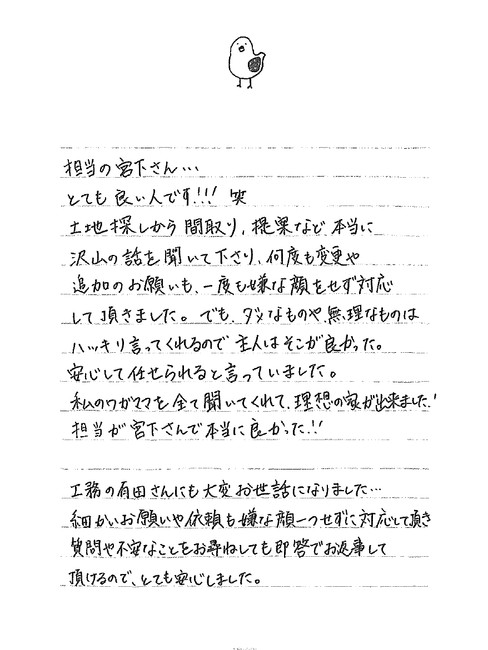 担当の宮下さん…
とても良い人です!!! 笑
土地探しから間取り、提案など本当に
沢山の話を聞いて下さり、何度も変更や
追加のお願いも、一度も嫌な顔をせず対応
して頂きました。でも、ダメなものや、無理なものは
ハッキリ言ってくれるので主人はそこが良かった。
安心して任せられると言っていました。
私のワガママを全て聞いてくれて、理想の家が出来ました!
担当が宮下さんで本当に良かった!!
工務の有田さんにも大変お世話になりました…
細かいお願いや依頼も嫌な顔一つせずに対応して頂き
質問や不安なことをお尋ねしても即答でお返事して
頂けるので、とても安心しました。